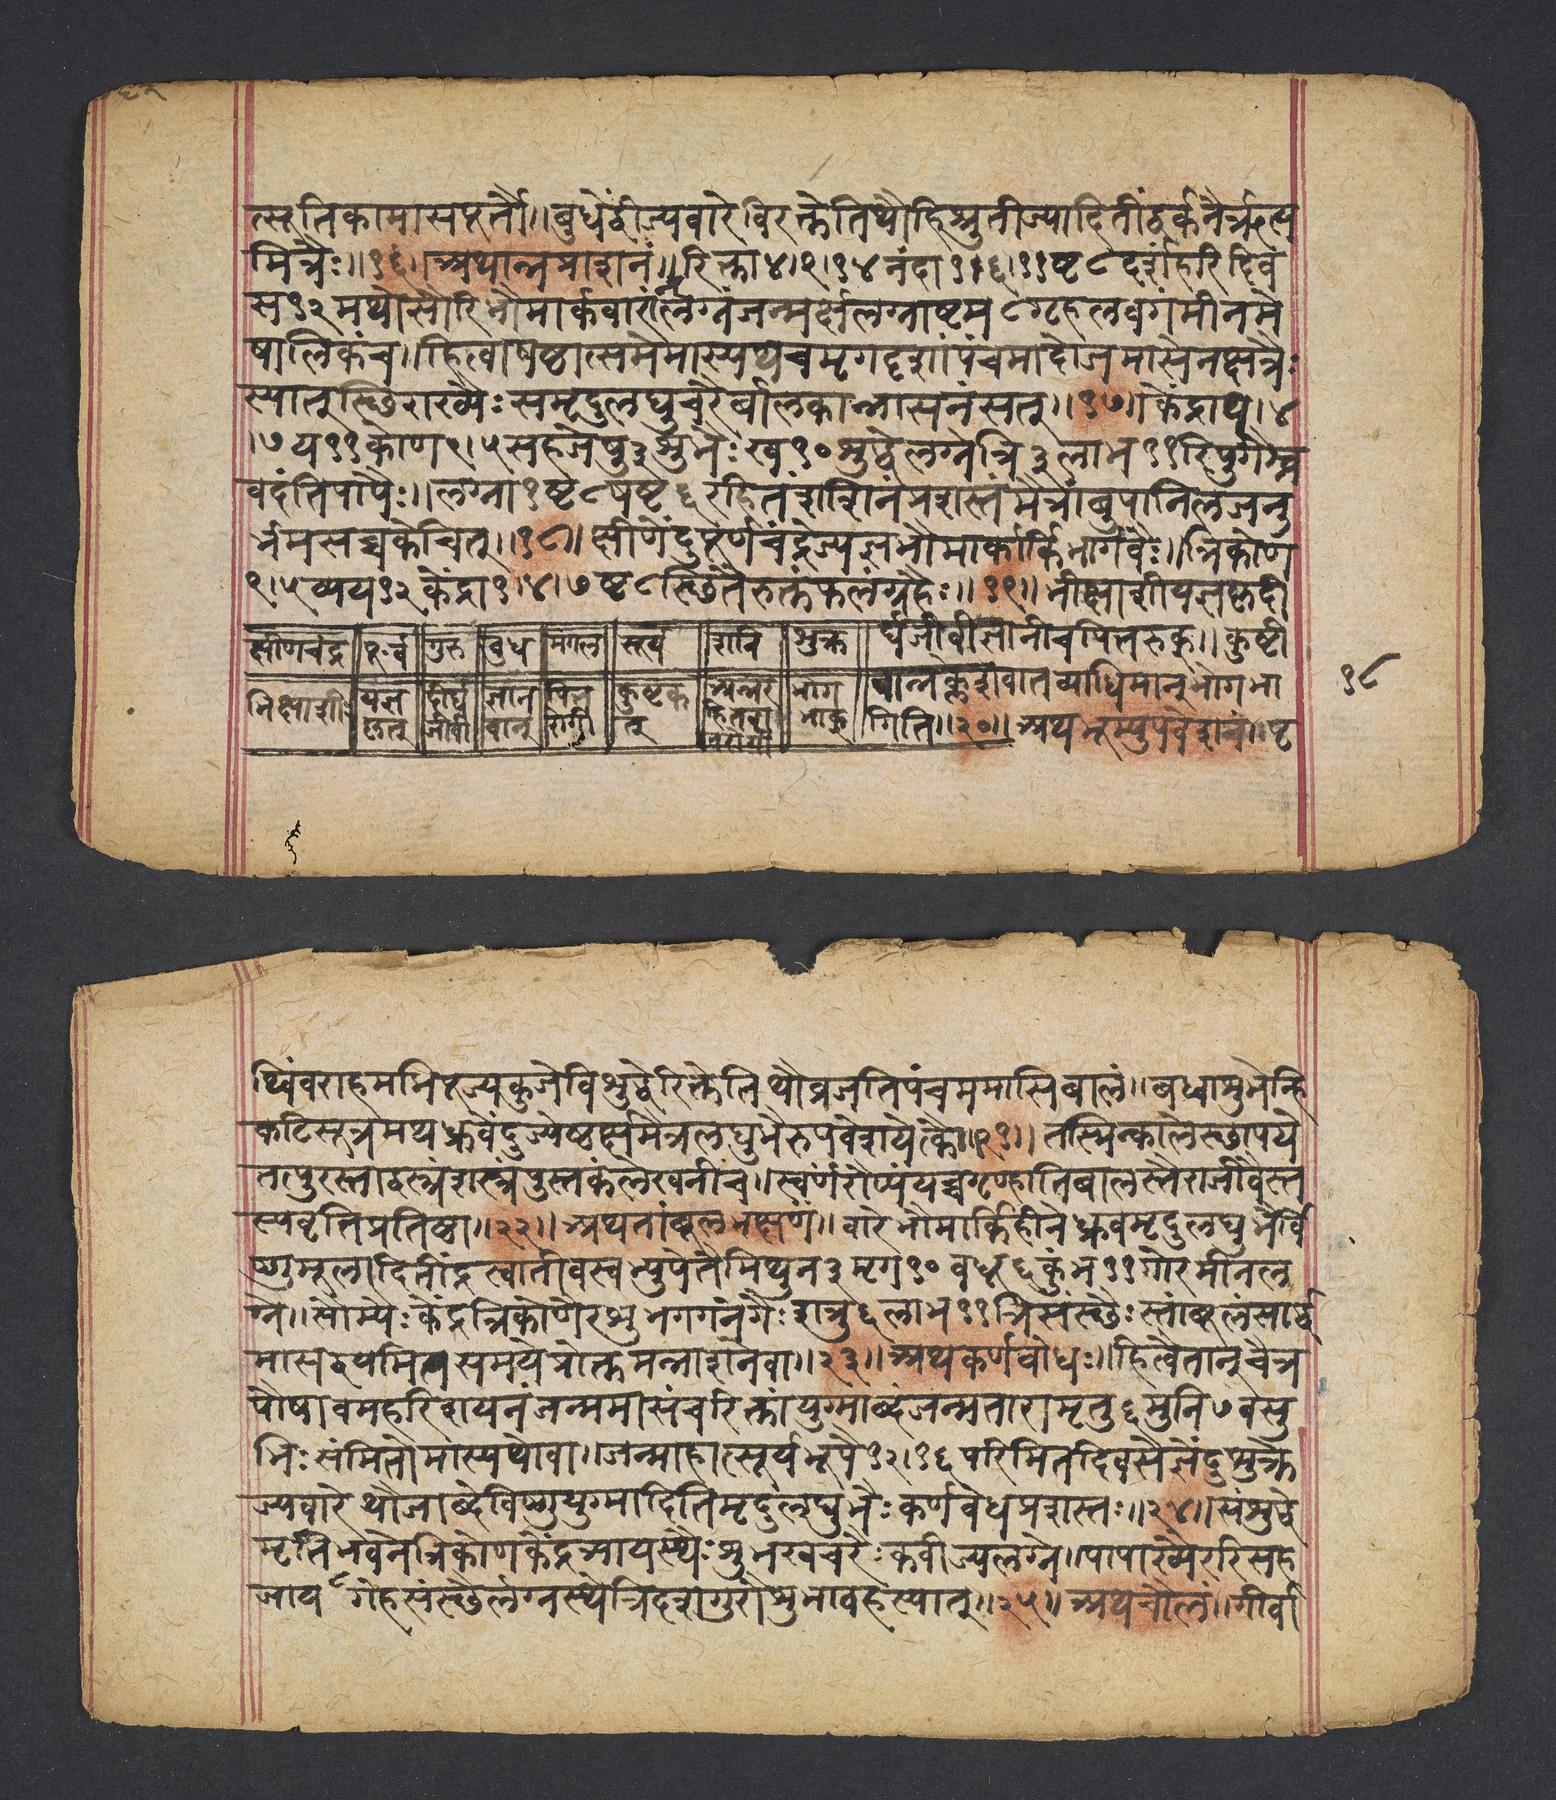 त्सूतिकामासपूर्तौ।।बुधेंद्वीज्यवारेविरक्तेतिथौहिश्रुतीज्यादितींद्वर्कनैर्ऋत्य
मित्रैः।।१६।।अथान्नप्राशनं।।रिक्ता४।९।१४नंदा१।६।११ष्ट८दर्शंहरिदिव
स१२मथोसौरिभौमार्कवारांल्लग्नंजन्मर्क्षलग्नाष्टम८गृहलवगंमीनमे
षालिकंच।।हित्वाषष्ठात्समेमास्यथचमृगदृशांपंचमादोजमासेनक्षत्रैः
स्यात्स्थिराख्यैःसमृदुलघुचरैर्बालकान्नासनंसत्।।१७।।केंद्राथ१।४
।७य११कोण९।५सहजेषु३शुभैःख१०शुद्धेलग्नेत्रि३लाभ११रिपुगैश्च
वदंतिपापैः।।लग्ना१ष्ट८षष्ट६रहितंशशिनंप्रशस्तंमैत्रांबुपानिलजनु
र्भमसच्चकेचित्।।१८।।क्षीणेंदुपूर्णचंद्रेज्यज्ञभौमार्कार्किभार्गवैः।।त्रिकोण
९।५व्यय१२केंद्रा१।४।७ष्ट८स्थितैरुक्तंफलंग्रहैः।।१९।।भीक्षाशीयज्ञकृद्दी
र्घजीवीज्ञानीचपित्तरुक्।।कुष्टी
क्षीणचंद्र पूर्ण गुरु बुध मंगल सूर्य शनि शुक्र
चान्नक्लेशवातव्याधिमान्भोगभा
१८
भिक्षाशी यज्ञ दीर्घ ज्ञान पित्त कुष्टक भोग
कृत् जीवी वान् रोगी त् भाक्
गिति।।२०।।अथभूम्युपवेशनं।।पृ
थ्विंवराहमभिपूज्यकुजेविशुद्धेरिक्तेतिथौव्रजतिपंचममासिबालं।।बध्वाशुभेन्हि
कटिसूत्रमथध्रुवेंदुज्येष्ठर्क्षमैत्रलघुभैरुपवेशयेत्कौ।।२१।।तस्मिन्कालेस्थापये
त्तत्पुरस्ताद्वस्त्रंशस्त्रंपुस्तकंलेखनींच।।स्वर्णंरौप्यंयच्चगृण्हातिबालस्तैराजीवैस्त
स्यवृत्तिप्रतिष्ठा।।२२।।अथतांबूलभक्षणं।।वारेभौमार्किहीनेध्रुवमृदुलघुभैर्वि
ष्णुमूलादितींद्रस्वातीवस्वभ्युपेतैमिथुन३मृग१०वधू६कुंभ११गोरमीनल
ग्ने।।सौम्यैःकेंद्रत्रिकोणैरशुभगगनगैःशत्रु६लाभ११त्रिसंस्थैःस्तांबूलंसार्द्ध
मासद्वयमितसमयेप्रोक्तमन्नाशनेवा।।२३।।अथकर्णवोधः।।हित्वैतान्चैत्र
पौषावमहरिशयनंजन्ममासंचरिक्तांयुग्माब्दंजन्मतारामृतु६मुनि७वसु
भिःसंमितोमास्यथोवा।।जन्माहात्सूर्यभूपै१२।१६परिमितदिवसेज्ञेंदुशुक्रे
ज्यवारेथौजाब्देविष्णुयुग्मादितिमृदुलघुभैःकर्णवेधप्रशस्तः।।२४।।संशुद्धे
मृतिभवनेत्रिकोणकेंद्रत्रायस्थैःशुभखचरैःकवीज्यलग्ने।।पापाख्यैररिसह
जायगेहसंस्थैर्लग्नस्थेत्रिदशगुरौशुभावहस्यात्।।२५।।अथचौलं।।गीर्वा